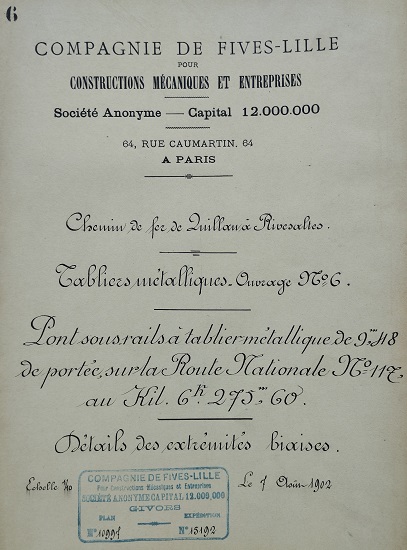 6
COMPAGNIE DE FIVES-LILLE
POUR
CONSTRUCTIONS MÉCANIQUES ET ENTREPRISES
Société Anonyme — Capital 12.000.000
64, RUE CAUMARTIN, 64
A PARIS
Chemin de fer de Quillan à Rivesaltes.
Tabliers métalliques. Ouvrage No 6.
Pont sous rails à tablier métallique de 9m,48
de portée, sur la Route Nationale No 117,
au Kil. 6k 275m,60.
Détails des extrémités biaises.
Echelle 1/10
Le 7 Août 1902
COMPAGNIE DE FIVES-LILLE
Pour Constructions Mécaniques et Entreprises
SOCIÉTÉ ANONYME CAPITAL 12.000,000
GIVORS
PLAN EXPÉDITION
No 10991 No 15192